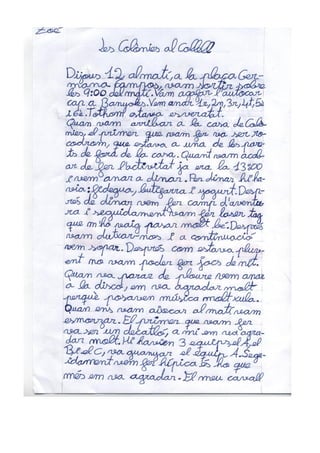 Les Colònies al Collell
Dijous 12 al matí, a la plaça Ger-
mana pampos, vam sortir sobre
les 9:00 del matí. Vam agafar l'autocar
cap a Banyoles. Vam anar 1r, 2n, 3r, 4t, 5è
i 6è. Tothom estava esverat.
Quan vam arribar a la casa de Colò-
nies, el primer que vam fer va ser ro-
codrom, que estava a una de les par-
ts de fora de la casa. Quant vam acab-
ar de fer l'activitat ja era la 13:00
i vam anar a dinar. Per dinar hi ha-
via: fideguà, butifarra i yogurt. Desp-
rés de dinar vam fer camp d'aventu-
ra i seguidament vam fer laser tag
que m ho vaig pasar molt be. Després
vam dutxar-nos i a continuació
vam sopar. Després com estava plov-
ent no vam poder fer jocs de nit.
Quan va parar de ploure vam anar
a la disco, em va agradar molt
perquè posaven música molt xula.
Quan ens vam aixecar al matí vam
esmorzar. El primer que vam fer
va ser un decatló, a mi em va agra-
dar molt. Hi havien 3 equips, el A, el
B i el C, va guanyar el equip A. Sege-
idament vam fer hípica És ho que
més em va agradar. El meu cavall